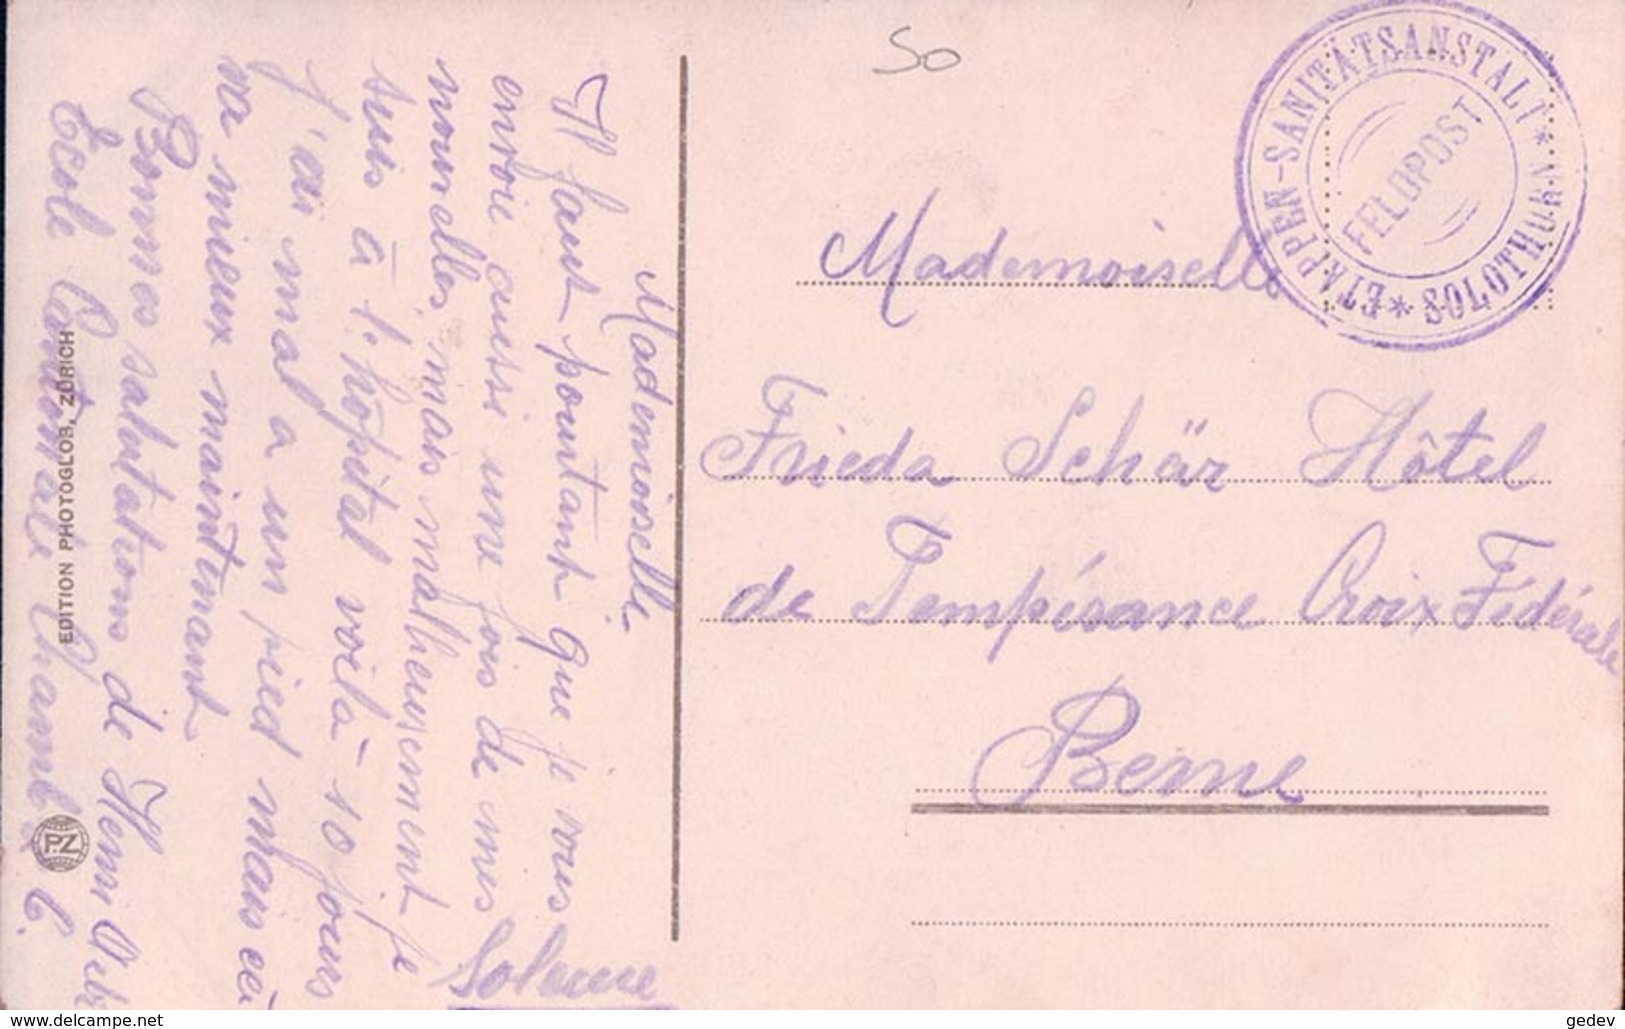 50
ETAPPEN-SANITÄTSANSTALT
SOLOTHURN
FELDPOST
Mademoiselle
Frieda Schär Hôtel
de Tempérance Croix Fédérale
Berne
Mademoiselle
Il faut pourtant que je vous
envoie aussi une fois de mes
nouvelles, mais malheureusement je
suis à l'hôpital voilà 10 jours
j'ai mal a un pied mais ça
va mieux maintenant
Bonnes salutations de Henri
Ecole Cantonale Chamb. 6.
Soleure
EDITION PHOTOGLOB, ZÜRICH
PZ
www.delcampe.net
gedev